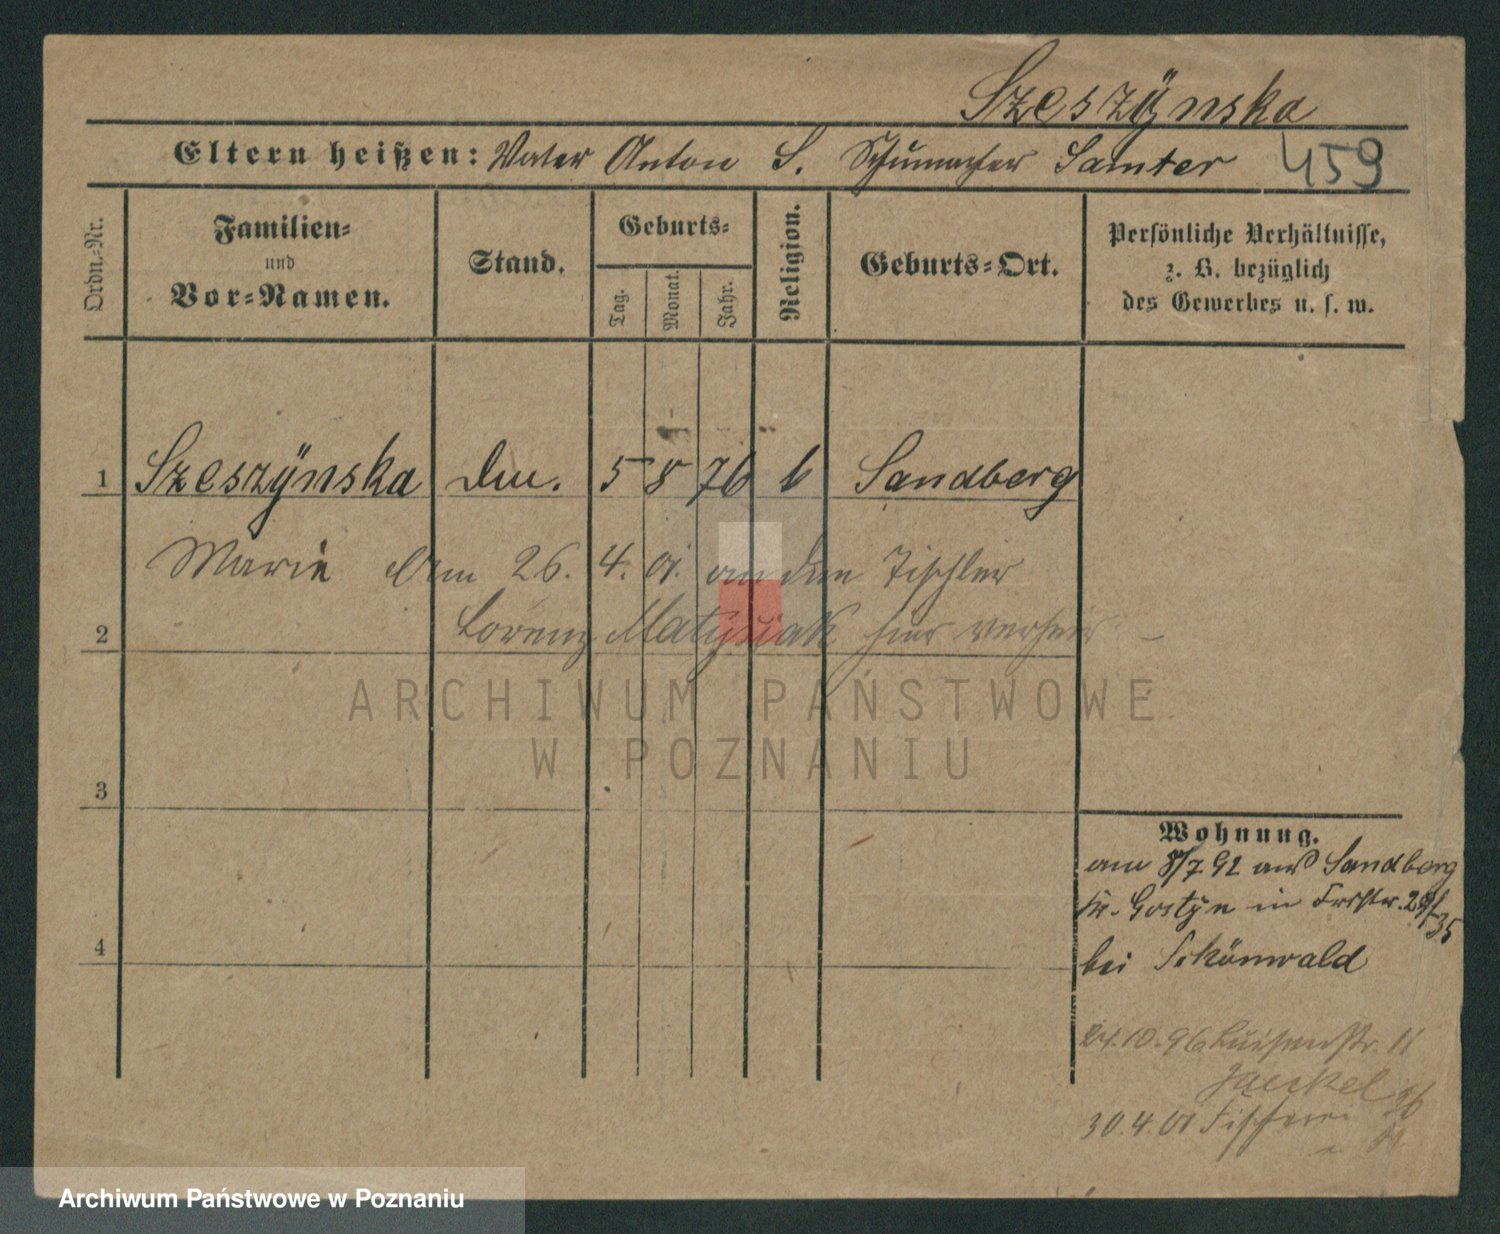 Szeszÿnska
Eltern heißen: Vater Anton S. Schumacher Samter 459
Ordn.-Nr.
Familien-
und
Vor-Namen.
Stand.
Geburts-
Tag.
Monat.
Jahr.
Religion.
Geburts-Ort.
Persönliche Verhältnisse,
z. B. bezüglich
des Gewerbes u. s. w.
1 Szeszÿnska 5 8 76 Sandberg
Marie 26. 4. 01. an den Tischler
2 Lorenz Matysiak hier
ARCHIWUM PAŃSTWOWE
W POZNANIU
3
4
Wohnung.
am 8/7 92 aus Sandberg
Kr. Gostÿn in
bei Schönwald
10.96 Luisenstr. 11
Jaeckel
30.4.01
Archiwum Państwowe w Poznaniu